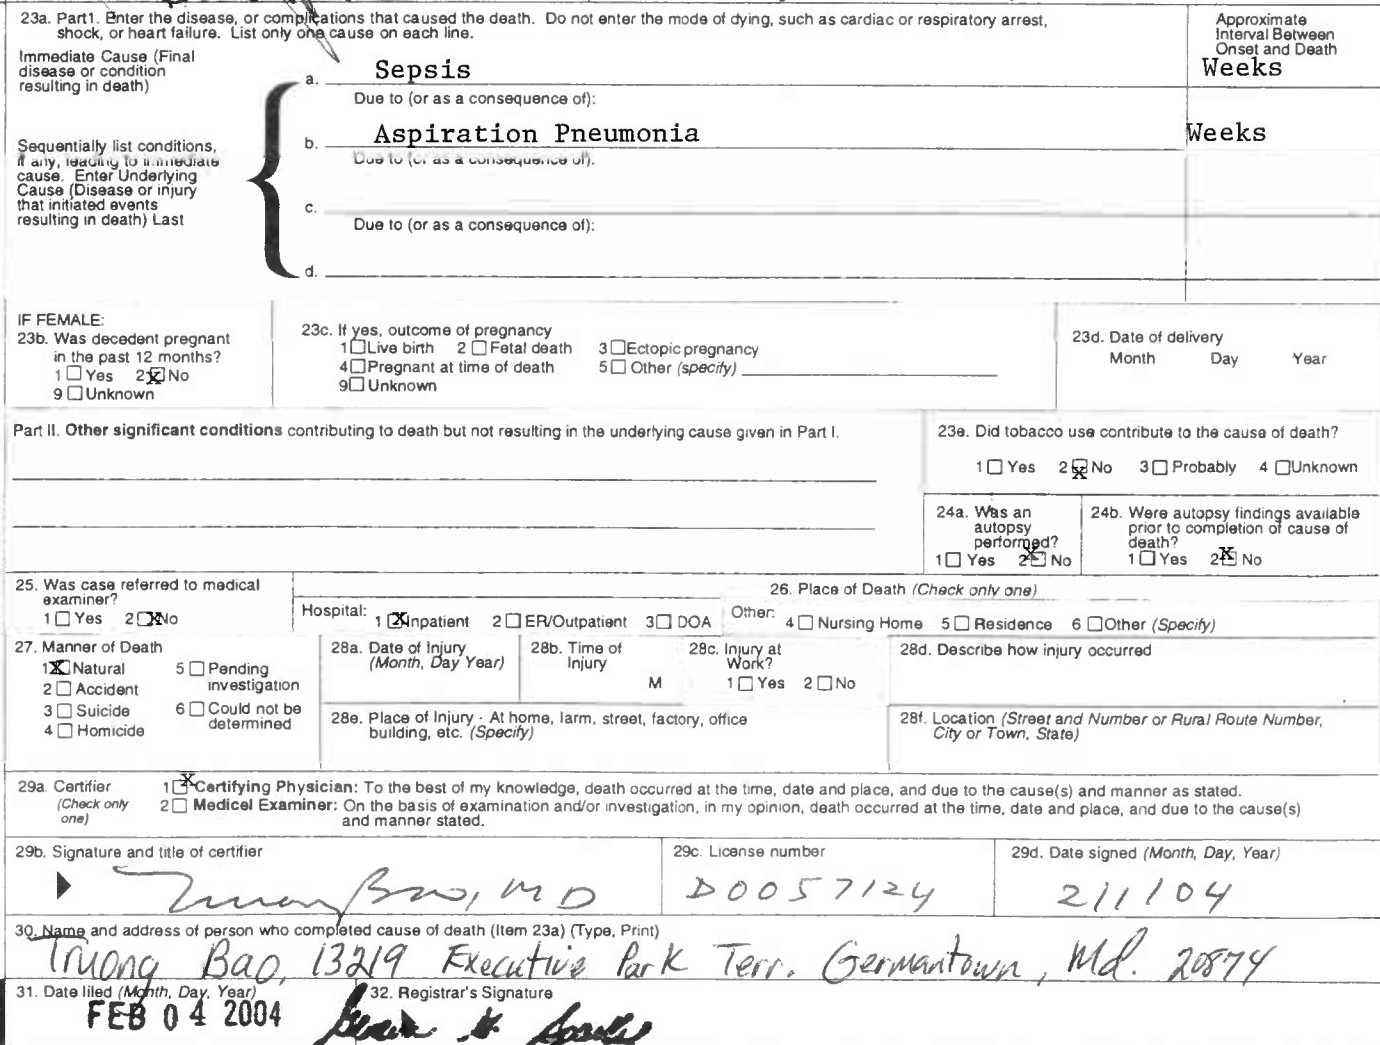 23a. Part1. Enter the disease, or complications that caused the death. Do not enter the mode of dying, such as cardiac or respiratory arrest,
shock, or heart failure. List only one cause on each line.
Approximate
Interval Between
Onset and Death
Immediate Cause (Final
disease or condition
resulting in death)
a. Sepsis Weeks
Due to (or as a consequence of):
Sequentially list conditions,
if any, leading to immediate
cause. Enter Underlying
Cause (Disease or injury
that initiated events
resulting in death) Last
b. Aspiration Pneumonia Weeks
Due to (or as a consequence of).
c.
Due to (or as a consequence of):
d.
IF FEMALE:
23b. Was decedent pregnant
in the past 12 months?
1 Yes 2 X No
9 Unknown
23c. If yes, outcome of pregnancy
1 Live birth 2 Fetal death 3 Ectopic pregnancy
4 Pregnant at time of death 5 Other (specify)
9 Unknown
23d. Date of delivery
Month Day Year
Part II. Other significant conditions contributing to death but not resulting in the underlying cause given in Part I.
23e. Did tobacco use contribute to the cause of death?
1 Yes 2 X No 3 Probably 4 Unknown
24a. Was an
autopsy
performed?
1 Yes 2 X No
24b. Were autopsy findings available
prior to completion of cause of
death?
1 Yes 2 X No
25. Was case referred to medical
examiner?
1 Yes 2 X No
26. Place of Death (Check only one)
Hospital: 1 X Inpatient 2 ER/Outpatient 3 DOA Other: 4 Nursing Home 5 Residence 6 Other (Specify)
27. Manner of Death
1 X Natural 5 Pending
investigation
2 Accident
3 Suicide 6 Could not be
determined
4 Homicide
28a. Date of Injury
(Month, Day Year)
28b. Time of
Injury
M
28c. Injury at
Work?
1 Yes 2 No
28d. Describe how injury occurred
28e. Place of Injury - At home, farm, street, factory, office
building, etc. (Specify)
28f. Location (Street and Number or Rural Route Number,
City or Town, State)
29a. Certifier
(Check only
one)
1 X Certifying Physician: To the best of my knowledge, death occurred at the time, date and place, and due to the cause(s) and manner as stated.
2 Medical Examiner: On the basis of examination and/or investigation, in my opinion, death occurred at the time, date and place, and due to the cause(s)
and manner stated.
29b. Signature and title of certifier
Truong Bao, MD
29c. License number
D0057124
29d. Date signed (Month, Day, Year)
2/1/04
30. Name and address of person who completed cause of death (Item 23a) (Type, Print)
Truong Bao, 13219 Executive Park Terr. Germantown, Md. 20874
31. Date filed (Month, Day, Year)
FEB 04 2004
32. Registrar's Signature